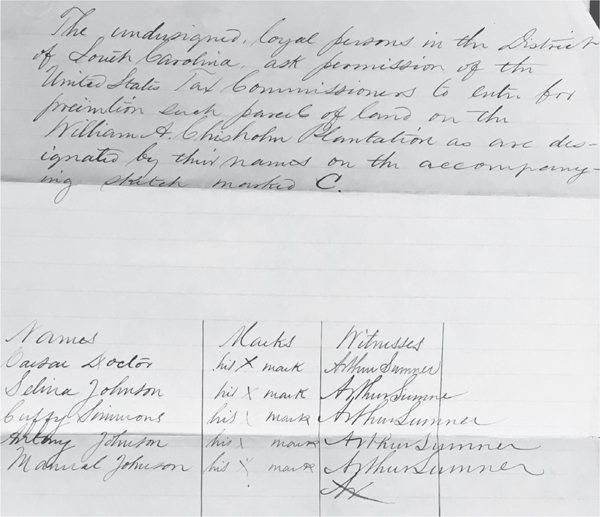 The undersigned, loyal persons in the District
of South Carolina, ask permission of the
United States Tax Commissioners to enter for
preemtion such parcel of land on the
William A. Chisholm Plantation as are des-
ignated by their names on the accompany-
ing sketch marked C.
Names Marks Witnesses
Caesar Doctor his X mark Arthur Sumner
Selina Johnson his X mark Arthur Sumne
Cuffy Simmons his \ mark Arthur Sumner
Johnson his X mark Arthur Sumner
Manual Johnson his X mark Arthur Sumner